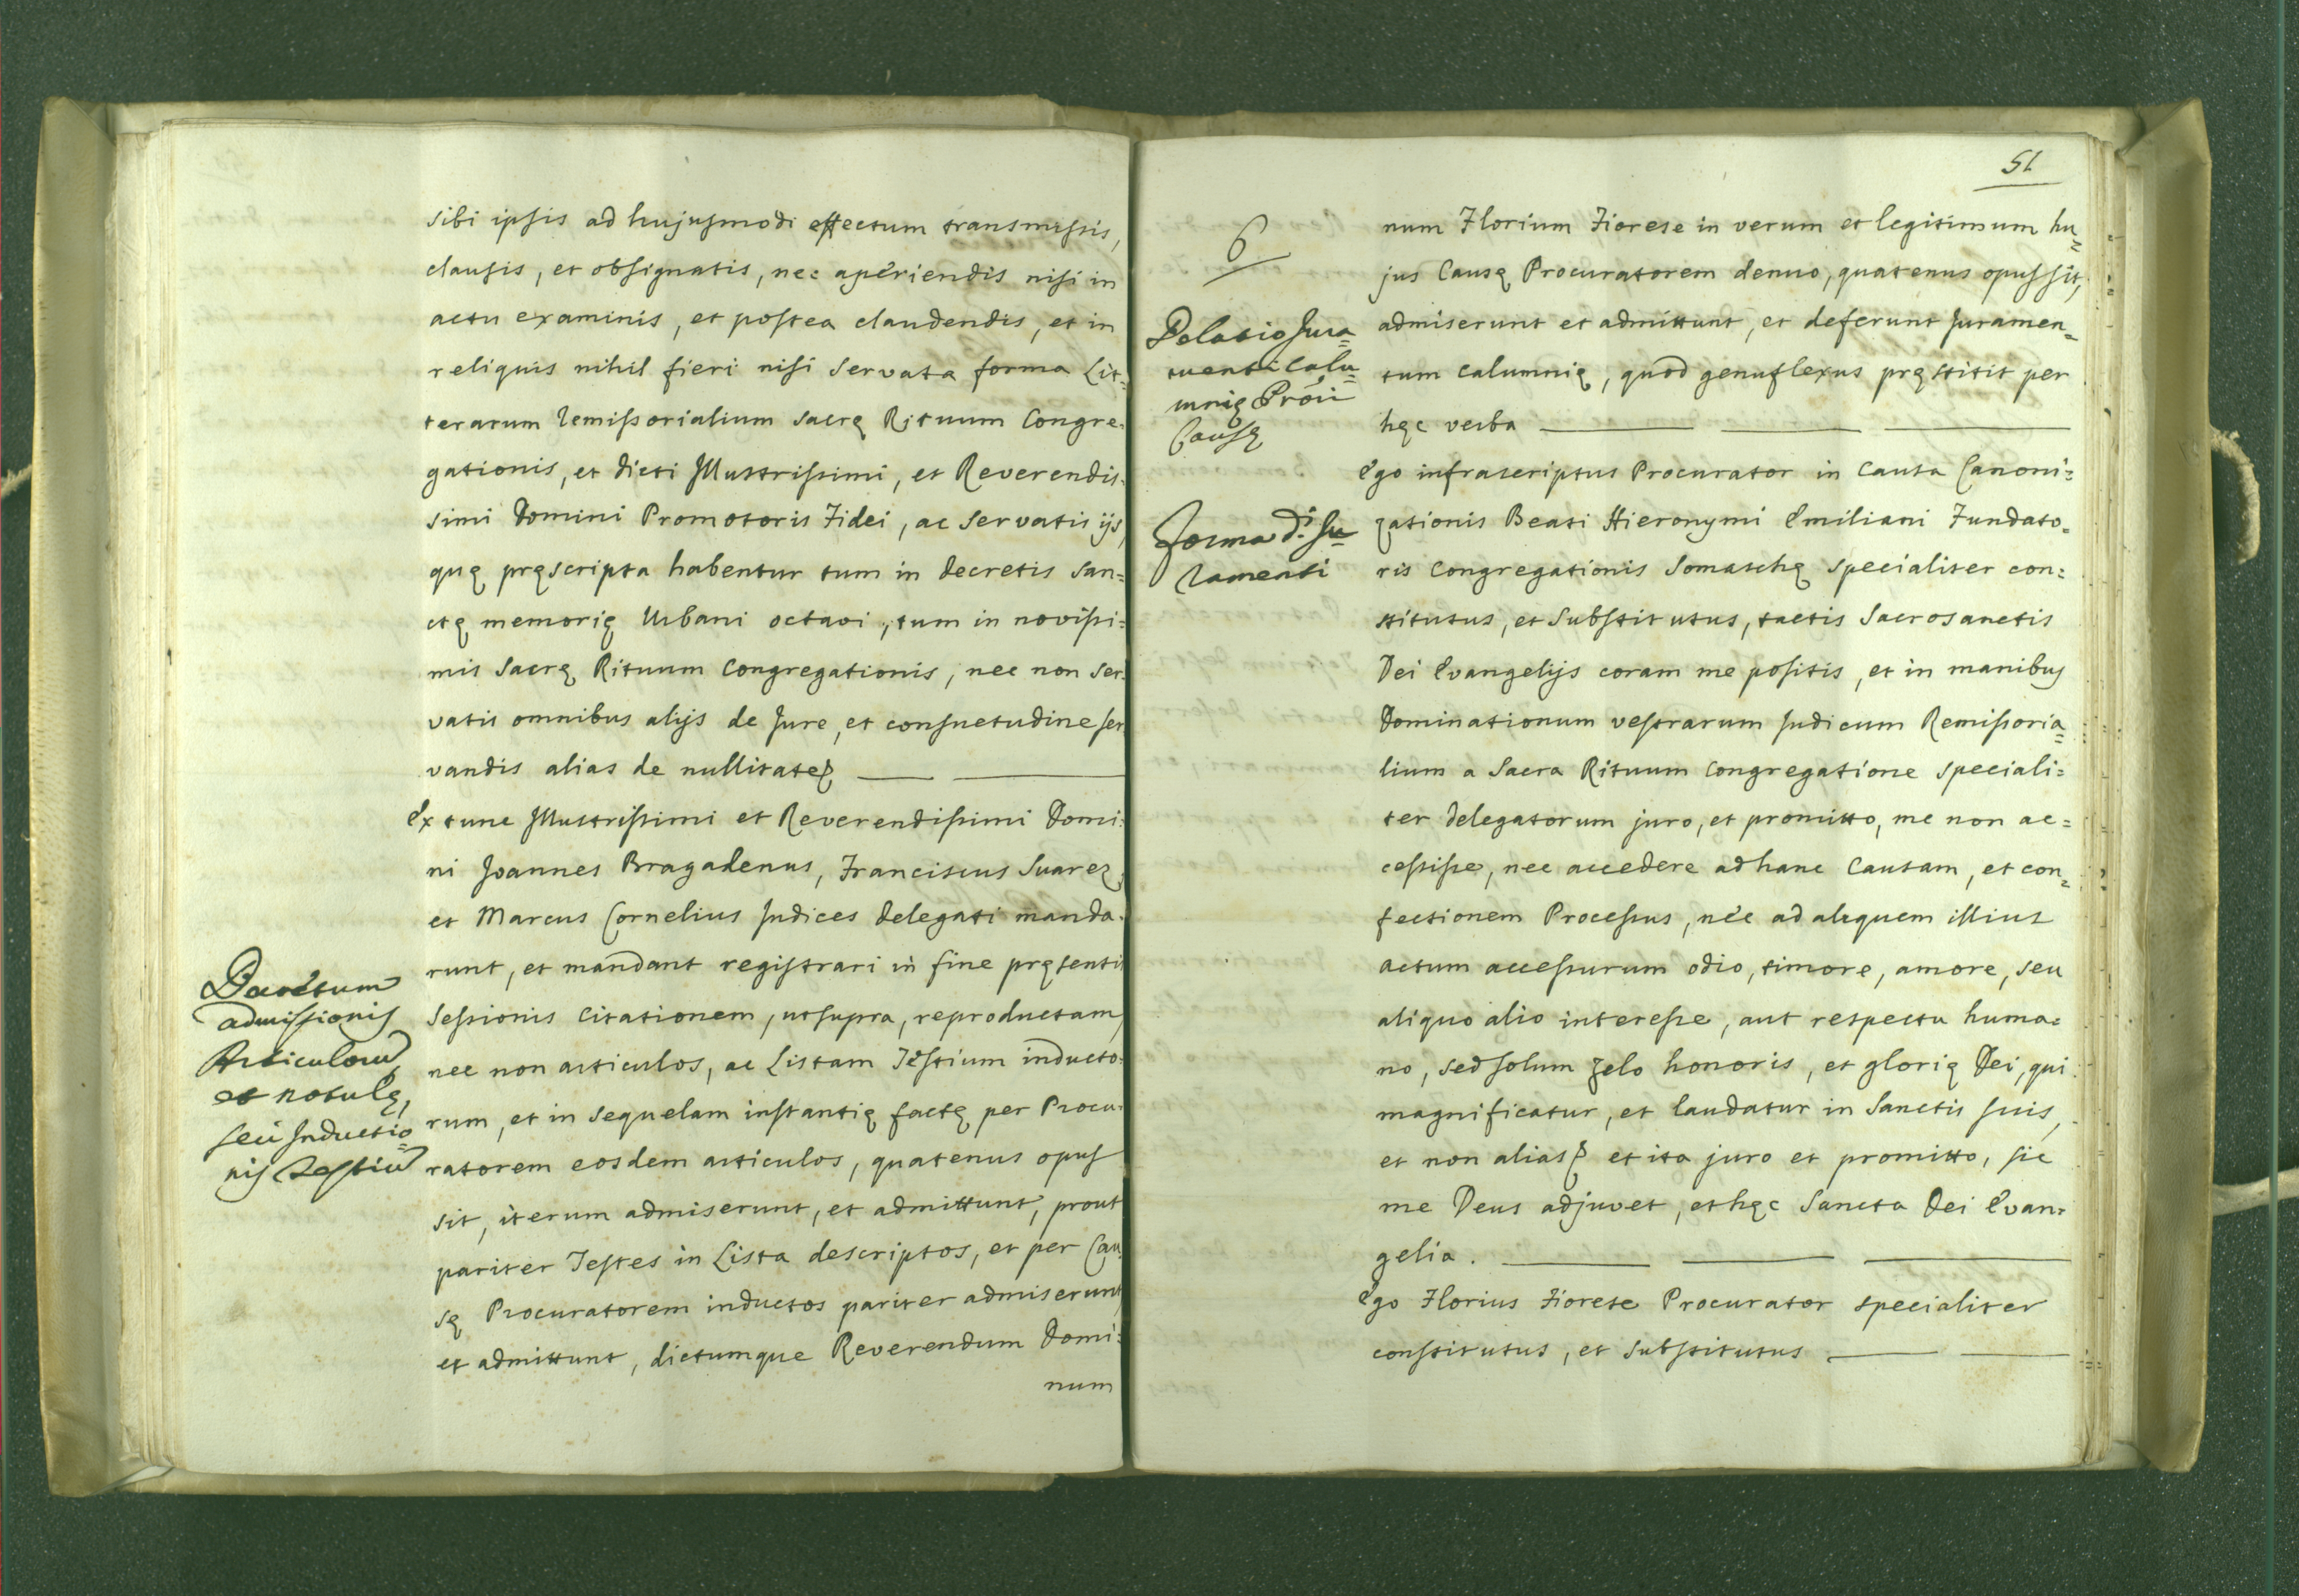 sibi ipsis ad hujusmodi effectum transmissis,
clausis, et obsignatis, nec aperiendis nisi in
actu examinis, et postea claudendis, et in
reliquis nihil fieri nisi servata forma Lit=
terarum remissorialium sacrę Rituum Congre=
gationis, et dicti Illustrissimi, et Reverendis=
simi Domini Promotoris Fidei, ac servatis ijs,
quę pręscripta habentur tum in decretis san=
ctę memorię Urbani octavi, tum in novissi=
mis Sacrę Rituum Congregationis, nec non ser=
vatis omnibus alijs de Jure, et consuetudine ser
vandis alias de nullitate
Ex tunc Illustrissimi et Reverendissimi Domi=
ni Joannes Bragadenus, Franciscus Suarez,
et Marcus Cornelius Judices delegati manda=
runt, et mandant registrari in fine pręsentis
Sessionis Citationem, ut supra, reproductam,
nec non articulos, ac Listam Testium inducto=
rum, et in sequelam instantię factę per Procu=
ratorem eosdem articulos, quatenus opus
sit, iterum admiserunt, et admittunt, prout
pariter Testes in Lista descriptos, et per Cau=
sę Procuratorem inductos pariter admiserunt,
et admittunt, dictumque Reverendum Domi=
num
Decretum
admissionis
Articulorũ,
et notulę,
seu Inductio=
nis Testiũ
51
6
Delatio Jura=
menti Calu=
mnię Prõris
Causę
Forma d.i Ju=
ramenti
num Florium Fiorese in verum et legitimum hu=
jus Causę Procuratorem denuo, quatenus opus sit,
admiserunt et admittunt, et deferunt Juramen=
tum calumnię, quod genuflexus pręstitit per
hęc verba
Ego infrascriptus Procurator in Causa Canoni=
zationis Beati Hieronymi Emiliani Fundato=
ris Congregationis Somaschę specialiter con=
stitutus, et substitutus, tactis Sacrosanctis
Dei Evangelijs coram me positis, et in manibus
Dominationum vestrarum Judicum Remissoria=
lium a Sacra Rituum Congregatione speciali=
ter delegatorum juro, et promitto, me non ac=
cessisse, nec accedere ad hanc Causam, et con=
fectionem Processus, nec ad aliquem illius
actum accessurum odio, timore, amore, seu
aliquo alio interesse, aut respectu huma=
no, sed solum zelo honoris, et glorię Dei, qui
magnificatur, et laudatur in Sanctis suis,
et non alias et ita juro et promitto, sic
me Deus adjuvet, et hęc Sancta Dei Evan=
gelia.
Ego Florius Fiorese Procurator specialiter
constitutus, et substitutus